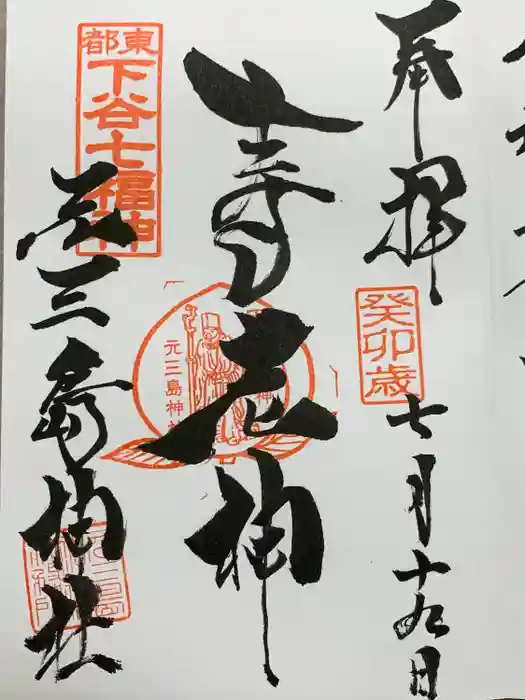 奉拝
癸卯歳
七月十九日
寿老神
元三島神社
東都
下谷七福神
元三島神社